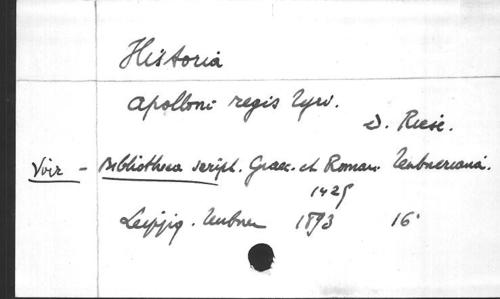 Historia
Apolloni regis Tyri.
D. Riese.
Voir - Bibliotheca script. Graec. et Roman. Teubneriana.
1425
Leipzig. Teubner 1893 16°